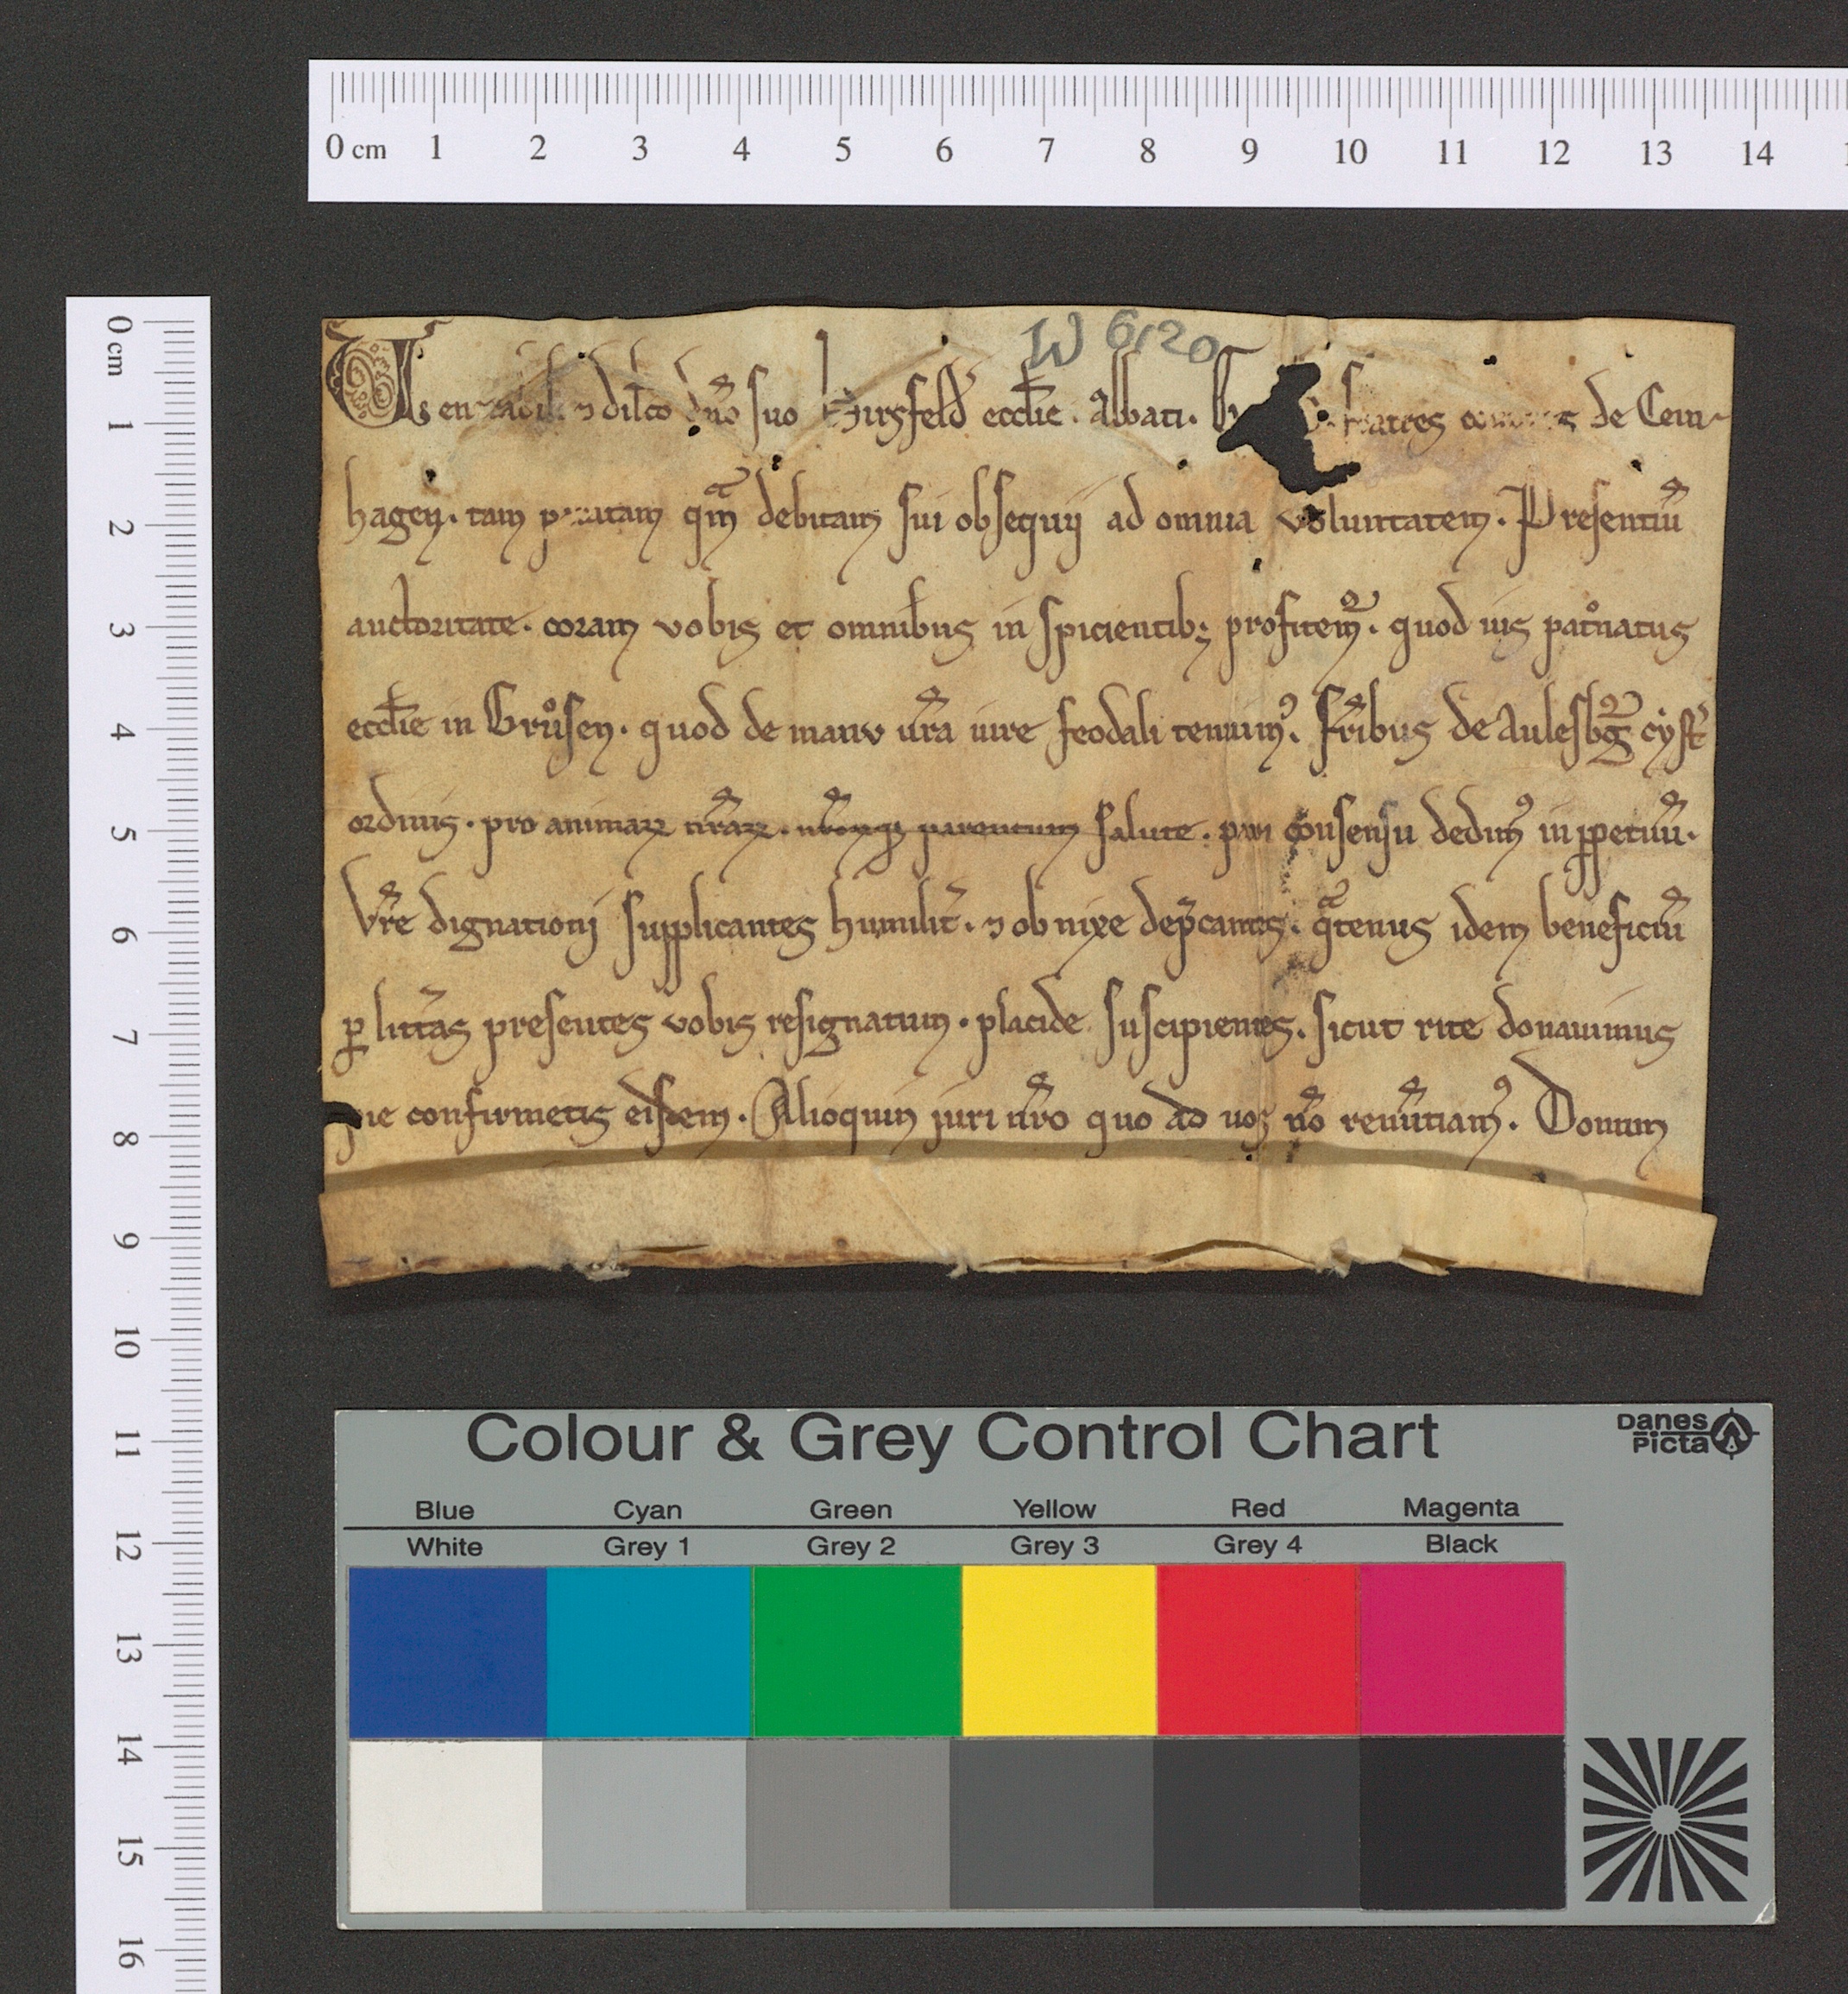 0 cm 1 2 3 4 5 6 7 8 9 10 11 12 13 14
0 cm 1 2 3 4 5 6 7 8 9 10 11 12 13 14 15 16
W 6120
dilc̄o dn̄o suo Hirsfeld̄ eccl̄ie. abbati. fratres de Cein
hagen. tam qͣm debitam sui obsequij ad omnia voluntatem. Presentiū
auctoritate. coram vobis et omnibus in spicientibꝫ profitemᷣ. quod ius patͦnatus
eccl̄ie in Grůsen. quod de manv ur̄a iure feodali tenuimꝰ. Fr̄ibus de Aulesbᷣg cyst̄
ordinis. pro animaꝝ nr̄aꝝ. nr̄oꝝqꝫ parentum salute. pari consensu dedimꝰ in ꝑpetuū.
Vr̄e dignationj supplicantes humilit̄. ⁊ ob nixe dep̄cantes. qͣtenus idem beneficiū
ꝑ litt̄as presentes vobis resignatum. placide suscipientes. sicut rite donauimus
pie confirmetis eisdem. Alioquin juri nr̄o quo ad uos nō renūtiamꝰ. Donum
Colour & Grey Control Chart
Danes Picta
Blue Cyan Green Yellow Red Magenta
White Grey 1 Grey 2 Grey 3 Grey 4 Black